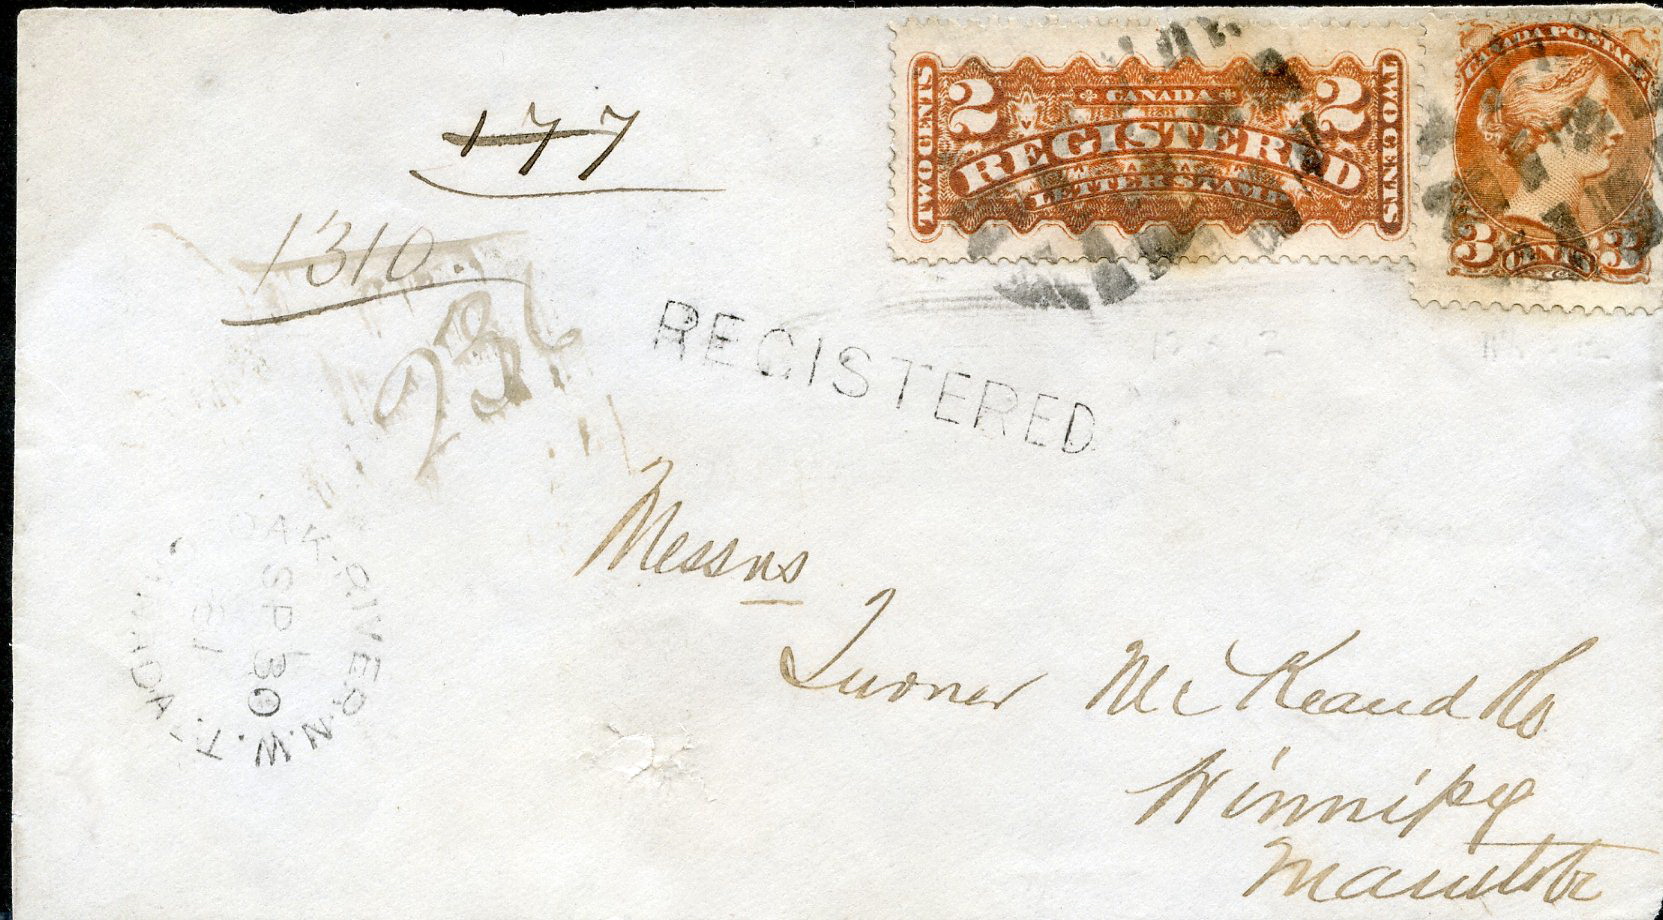 177
1310
236
2 CANADA 2
TWO CENTS
REGISTERED
LETTER STAMP
TWO CENTS
CANADA POSTAGE
3 CENTS 3
REGISTERED
OAK-RIVER.N.W.T.
SP 30
81
CANADA
Messrs
Turner McKeand Co
Winnipeg
Manitoba